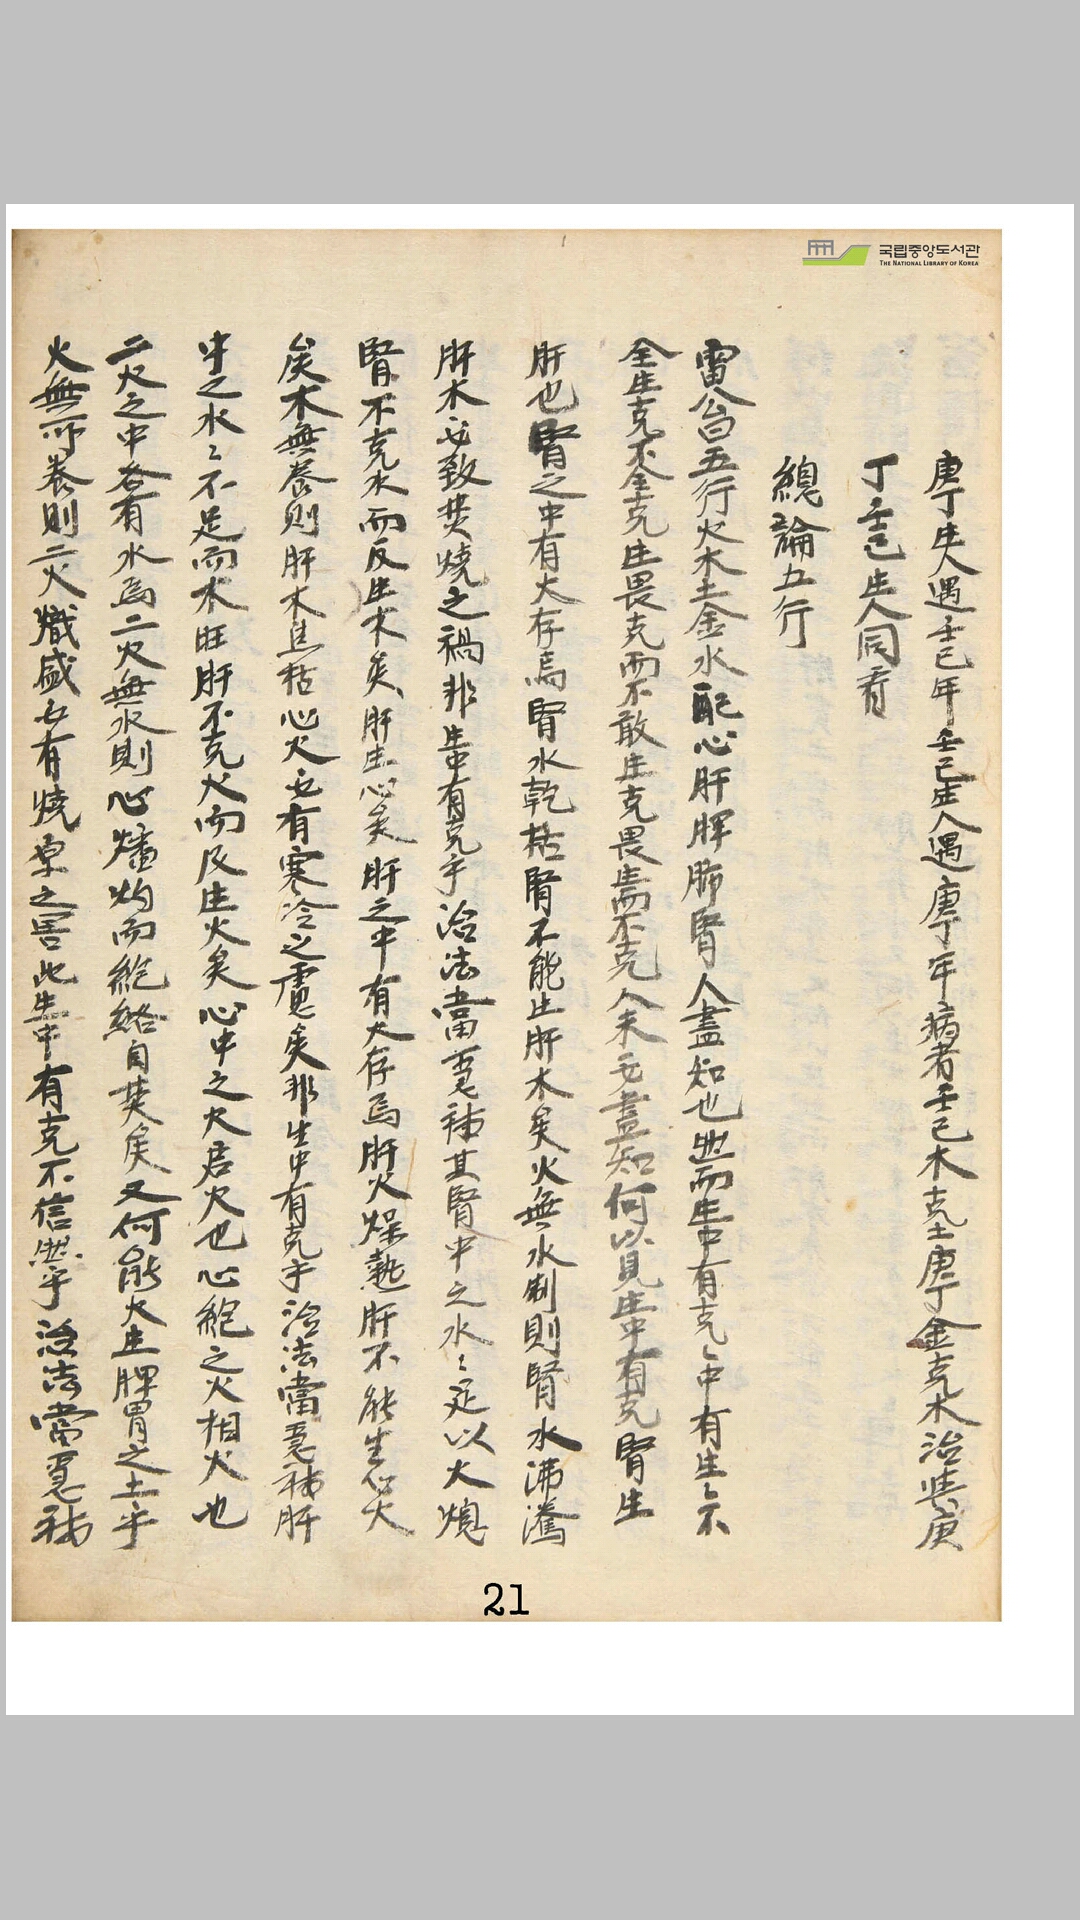 국립중앙도서관
THE NATIONAL LIBRARY OF KOREA
庚丁生人遇壬己年壬己生人遇庚丁年病者壬己木克土庚丁金克木治其庚
丁壬己生人同看
總論五行
雷公曰五行火木土金水配心肝脾肺腎人盡知也然而生中有克〻中有生〻不
全生克不全克生畏克而不敢生克畏生而不克人未必盡知何以見生中有克腎生
肝也腎之中有火存焉腎水乾枯腎不能生肝木矣火無水制則腎水沸騰
肝木必致焚燒之禍非生中有克乎治法當急補其腎中之水〻足以火熄
腎不克水而反生木矣肝生心矣肝之中有火存焉肝火燥熱肝不能生心火
矣木無養則肝木焦枯心火必有寒冷之虞矣非生中有克乎治法當急補肝
中之水〻不足而木旺肝不克火而反生火矣心中之火君火也心絶之火相火也
二火之中各有水焉二火無水則心燔灼而絶絡自焚矣又何能火生脾胃之土乎
火無所養則二火熾盛必有燒原之害此生中有克不信然乎治法當急補
21